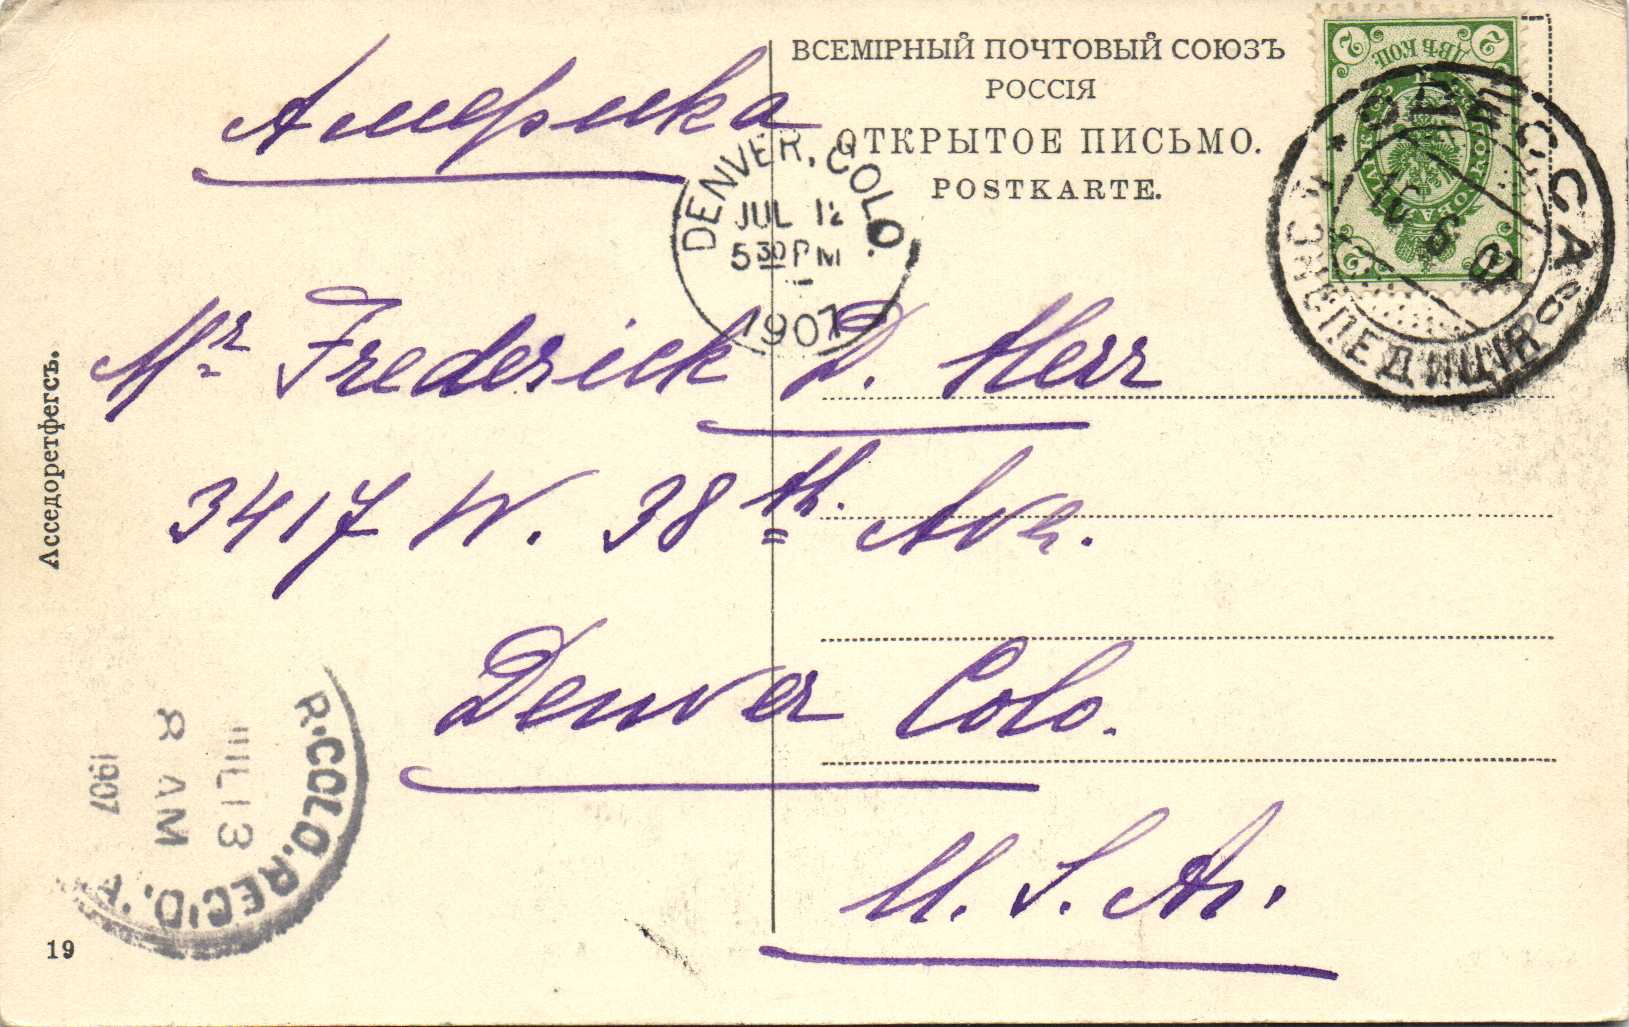 ВСЕМІРНЫЙ ПОЧТОВЫЙ СОЮЗЪ
РОССІЯ
ОТКРЫТОЕ ПИСЬМО.
POSTKARTE.
Америка
Mr Frederick D. Herr
3417 W. 38th. Ave.
Denver Colo.
U. S. A.
DENVER, COLO.
JUL 12
5 30 PM
1907
ОДЕССА
ЭКСПЕДИЦІЯ
2 ДВѢ КОП. 2
Асседоретфегсъ.
R. COLO. REC'D.
JUL 13
8 AM
1907
19